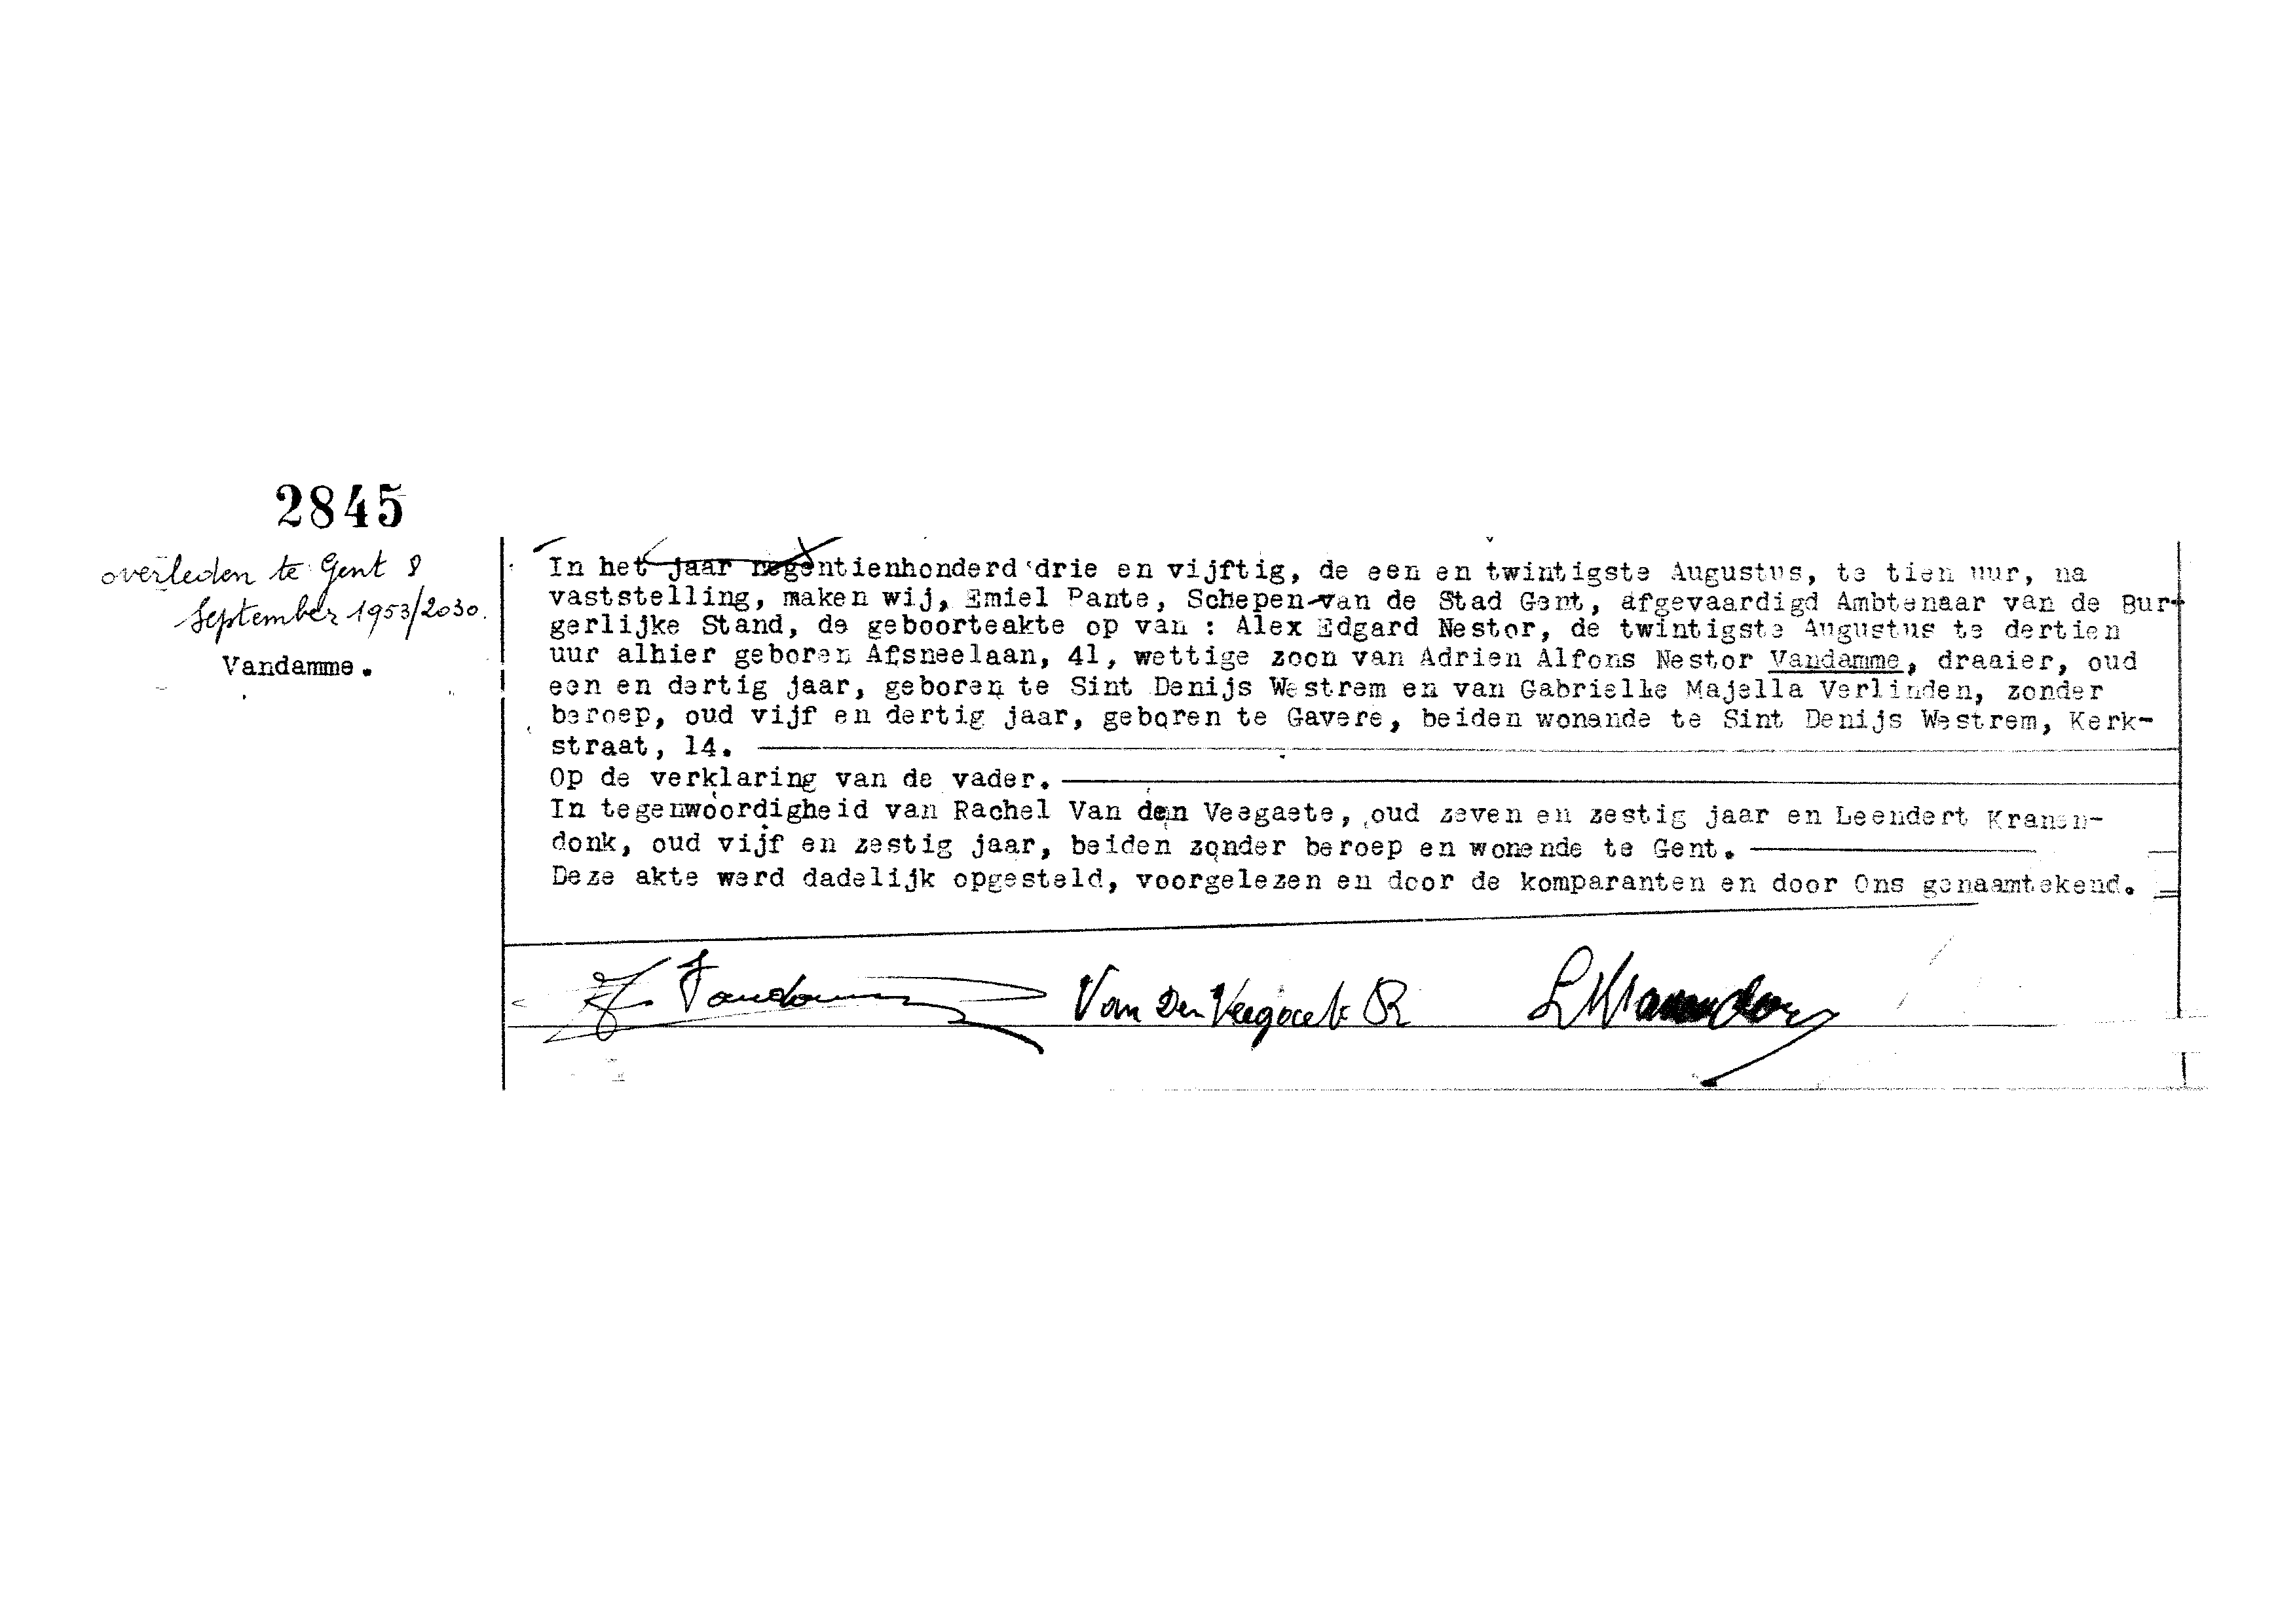 2845
overleden te Gent 8
September 1953/2030.
Vandamme.
In het jaar negentienhonderd drie en vijftig, de een en twintigste Augustus, te tien uur, na
vaststelling, maken wij, Emiel Pante, Schepen van de Stad Gent, afgevaardigd Ambtenaar van de Bur-
gerlijke Stand, de geboorteakte op van : Alex Edgard Nestor, de twintigste Augustus te dertien
uur alhier geboren Afsneelaan, 41, wettige zoon van Adrien Alfons Nestor Vandamme, draaier, oud
een en dertig jaar, geboren te Sint Denijs Westrem en van Gabrielle Majella Verlinden, zonder
beroep, oud vijf en dertig jaar, geboren te Gavere, beiden wonende te Sint Denijs Westrem, Kerk-
straat, 14.
Op de verklaring van de vader.
In tegenwoordigheid van Rachel Van den Veegaete, oud zeven en zestig jaar en Leendert Kranen-
donk, oud vijf en zestig jaar, beiden zonder beroep en wonende te Gent.
Deze akte werd dadelijk opgesteld, voorgelezen en door de komparanten en door Ons genaamtekend.
Van Den Veegaete R